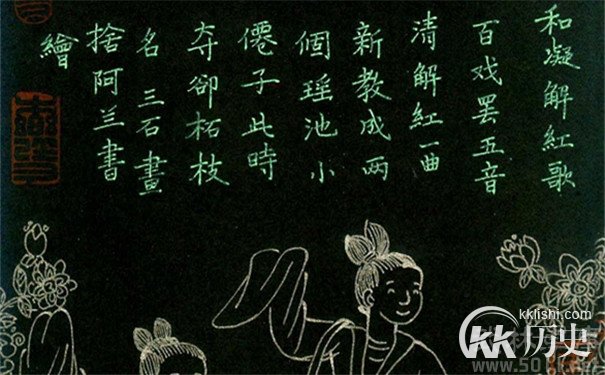 和凝解紅歌
百戏罢五音
清解紅一曲
新教成两
個瑶池小
僊子此時
夺卻柘枝
名 三石畫
捨阿兰書
繪
kklishi.com
KK历史